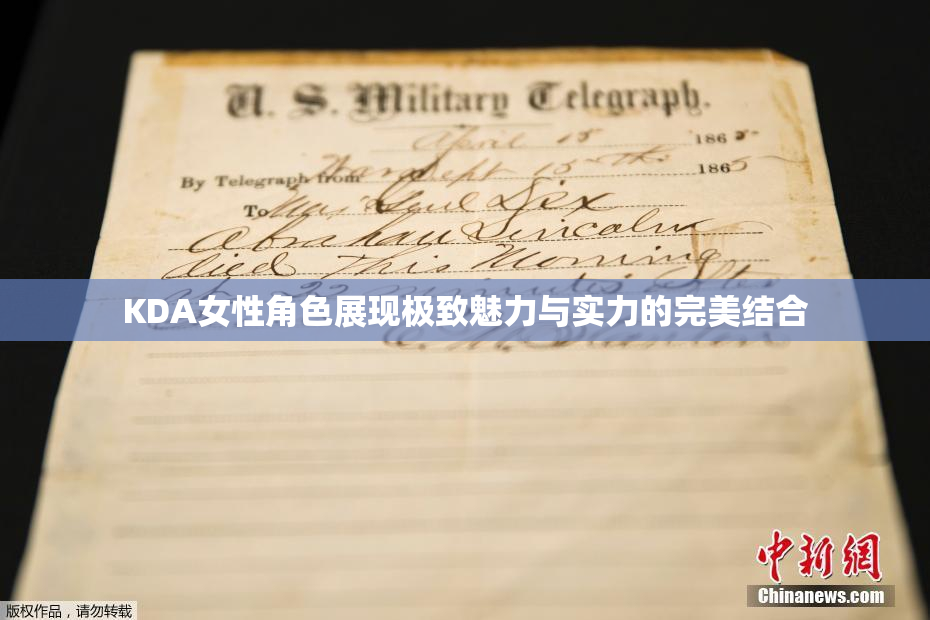 U. S. Military Telegraph.
April 15 1865
By Telegraph from War Dept 15th 1865
To Maj Genl Dix
Abraham Lincoln
died This Morning
at 22 minutes After
KDA女性角色展现极致魅力与实力的完美结合
E. M. Stanton
中新网
Chinanews.com
版权作品，请勿转载